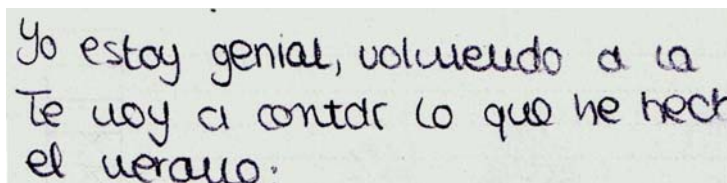 Yo estoy genial, volviendo a la
Te voy a contar lo que he hech
el verano.